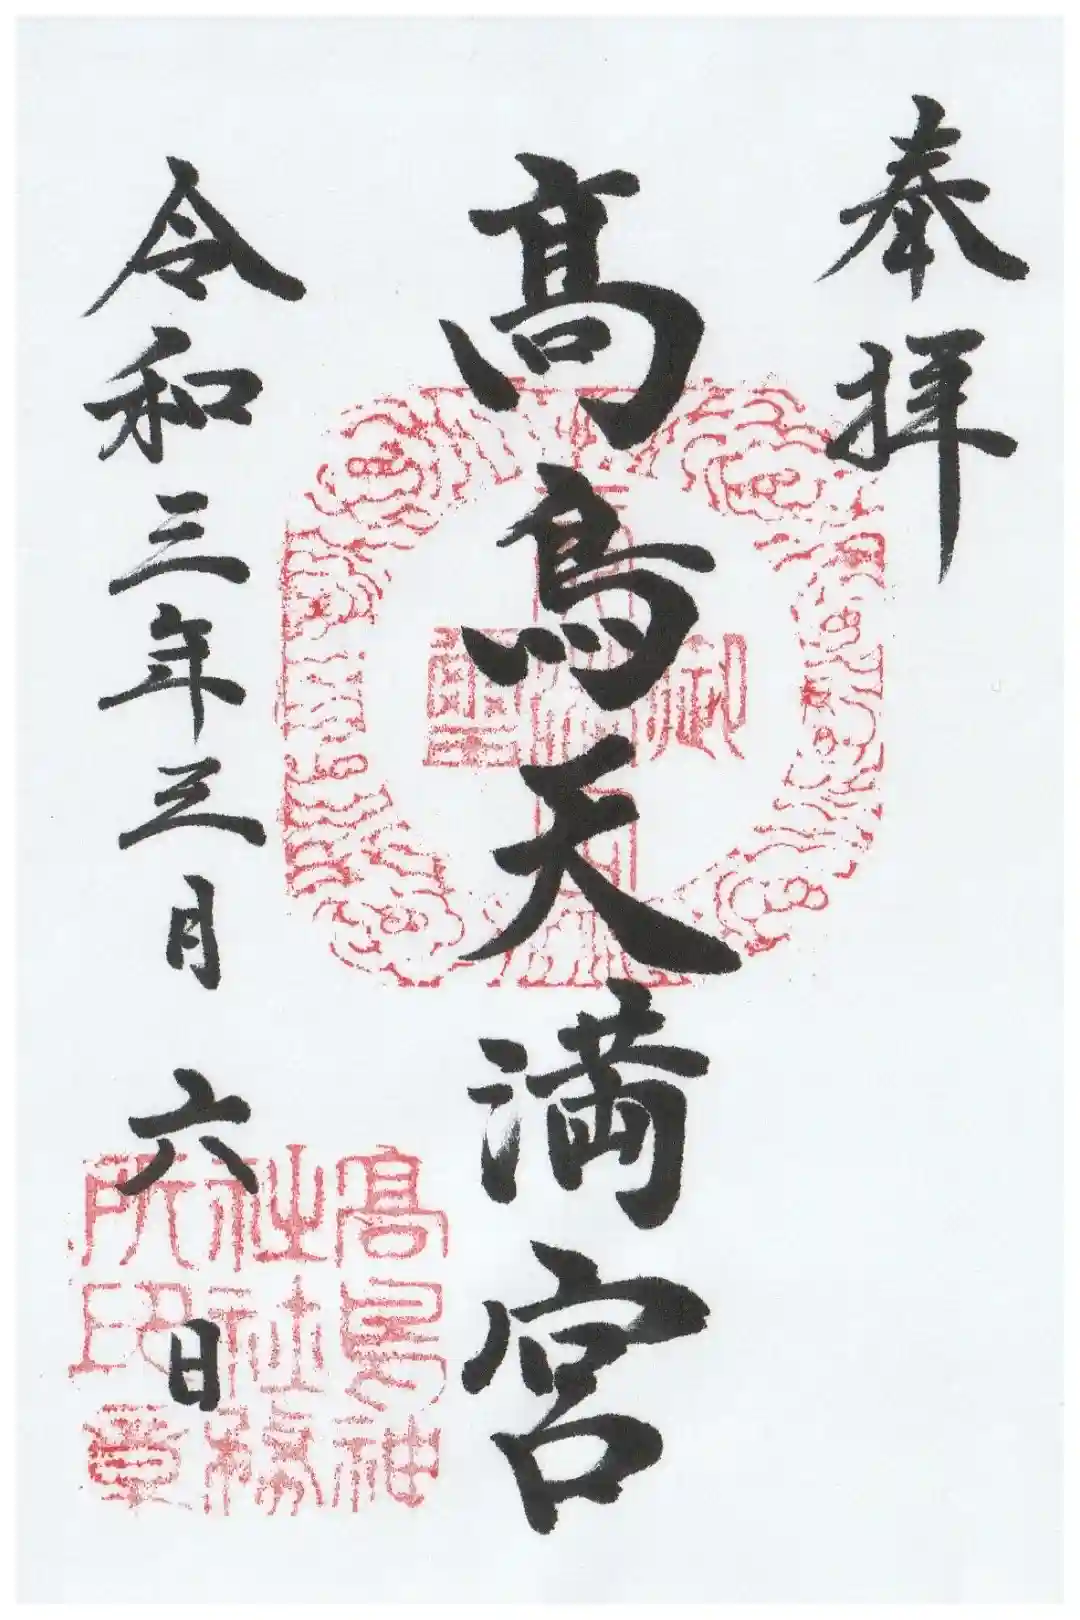 奉拝
髙鳥天満宮
令和三年三月六日
高鳥神
社社務
所印章